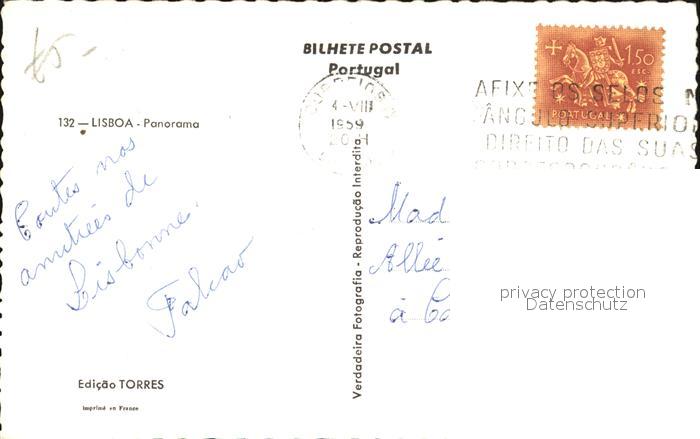 65-
BILHETE POSTAL
Portugal
1$50
ESC.
PORTUGAL
CORREIOS
4-VIII
1959
20H
AFIXE OS SELOS N
ÂNGULO SUPERIO
DIREITO DAS SUAS
132 — LISBOA - Panorama
Toutes nos
amitiés de
Lisbonne.
Falcao
Verdadeira Fotografia - Reprodução Interdita
Mad
Allée
à Ca
privacy protection
Datenschutz
Edição TORRES
Imprimé en France